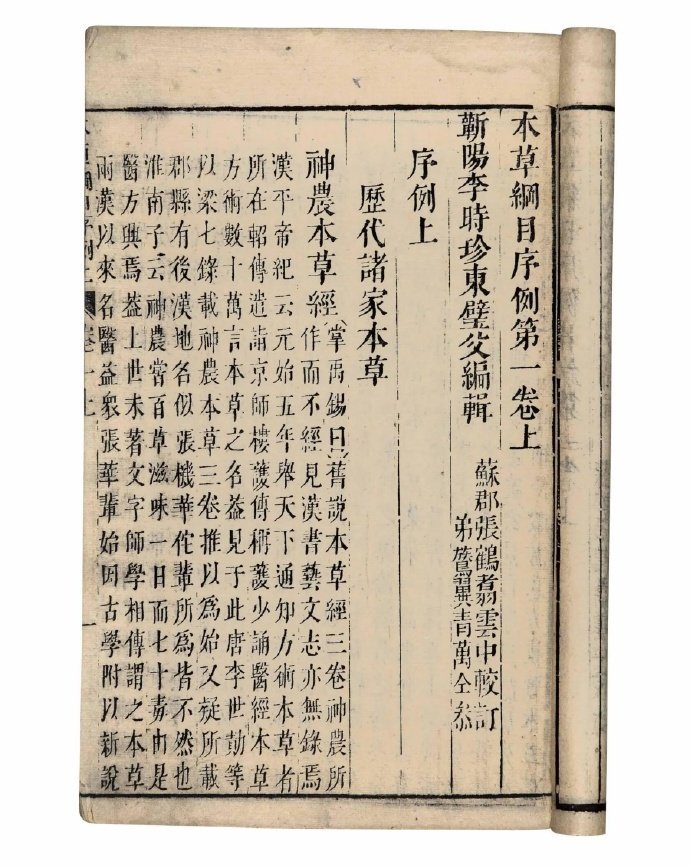 本草綱目序例第一卷上
蘄陽李時珍東璧父編輯
蘇郡張鶴翥雲中較訂
弟鷟翼青萬仝叅
序例上
歷代諸家本草
神農本草經
掌禹錫曰舊說本草經三卷神農所
作而不經見漢書藝文志亦無錄焉
漢平帝紀云元始五年舉天下通知方術本草者
所在軺傳遣詣京師樓護傳稱護少誦醫經本草
方術數十萬言本草之名蓋見于此唐李世勣等
以梁七錄載神農本草三卷推以爲始又疑所載
郡縣有後漢地名似張機華佗輩所爲皆不然也
淮南子云神農嘗百草滋味一日而七十毒由是
醫方興焉葢上世未著文字師學相傳謂之本草
兩漢以來名醫益衆張華輩始因古學附以新說
本草綱目序例上 卷一上